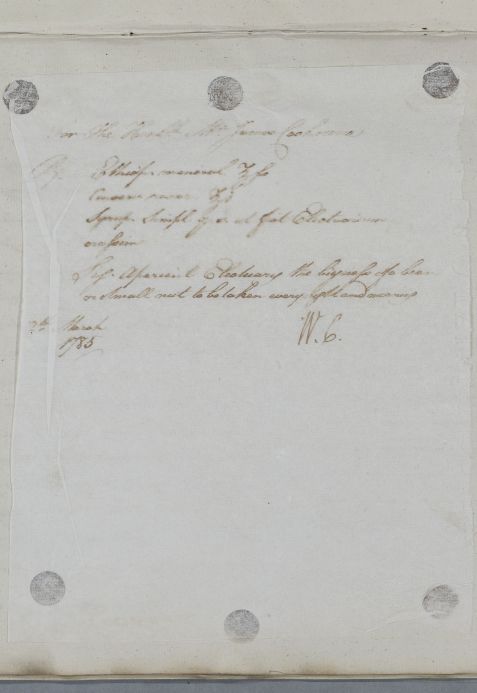 For The Honble Mr. James Cochrane
Rx Ethiop. mineral ʒ ſs
Conserv rosar ʒj
Syrup. Simpl q.s. ut fiat Electuarium
Sig. Aperient Electuary the bigness of a bean
or small nut to be taken every night and morning
March W.C.
1785